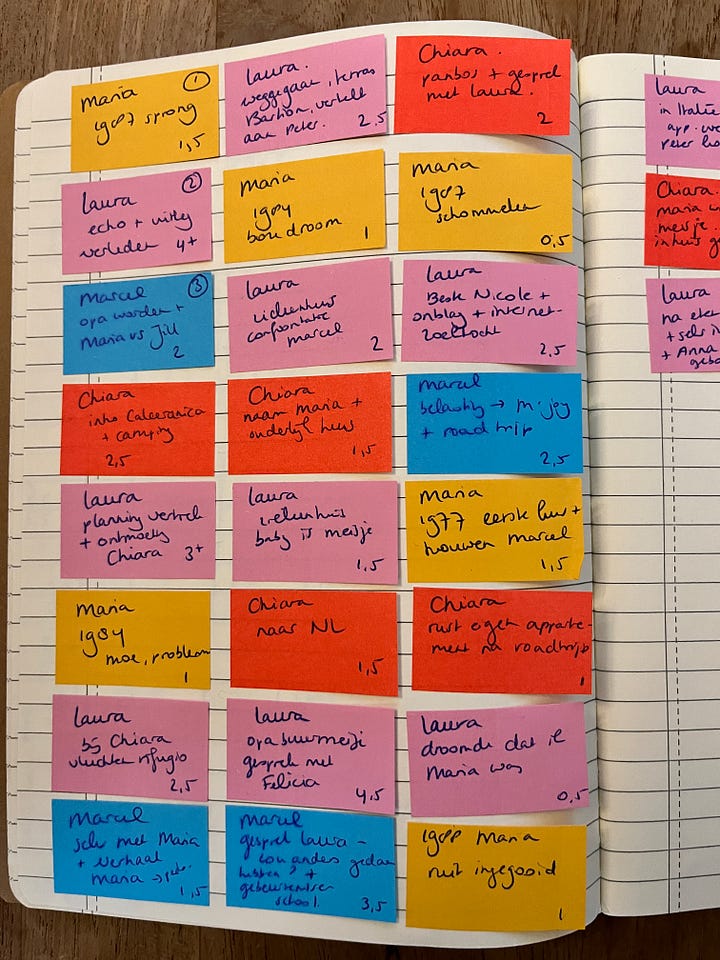 Maria ①
1987 sprong
1,5
Laura ②
echo + uitleg
verleden 4+
Marcel ③
opa worden +
Maria vs Jill
2
Chiara
intro Caleeranica
+ camping
2,5
Laura
planning vertrek
+ ontmoeting
Chiara 3+
Maria
1984
moe, problemen
1
Laura
bij Chiara
vluchten rifugio
2,5
Marcel
Maria
+ verhaal
Maria →
1,5
Laura.
weggegaan, terras
Bastion, vertelt
aan Peter.
2,5
Maria
1984
boze droom
1
Laura
ziekenhuis
confrontatie
marcel
2
Chiara
naam Maria +
ouderlijk huis
1,5
Laura
ziekenhuis
baby is meisje
1,5
Chiara
naar NL
1,5
Laura
opa buurmeisje
gesprek met
Felicia
4,5
Marcel
gesprek Laura -
zou anders gedaan
hebben? +
gebeurtenissen
school.
3,5
Chiara.
+ gesprek
met Laura.
2
Maria
1987
schommelen
0,5
Laura
Beste Nicole +
ontslag + internet-
zoektocht
2,5
Marcel
belasting → m-joy
+ roadtrip
2,5
Maria
1977 eerste huis +
trouwen marcel
1,5
Chiara
rust eigen apparte-
ment na roadtrip
1
Laura
droomde dat ik
Maria was
0,5
1988 Maria
ruit ingegooid
1
Laura
in Italië
app.
Peter
Chiara.
maria
meisje.
in huis
Laura
na
+
+ Anna